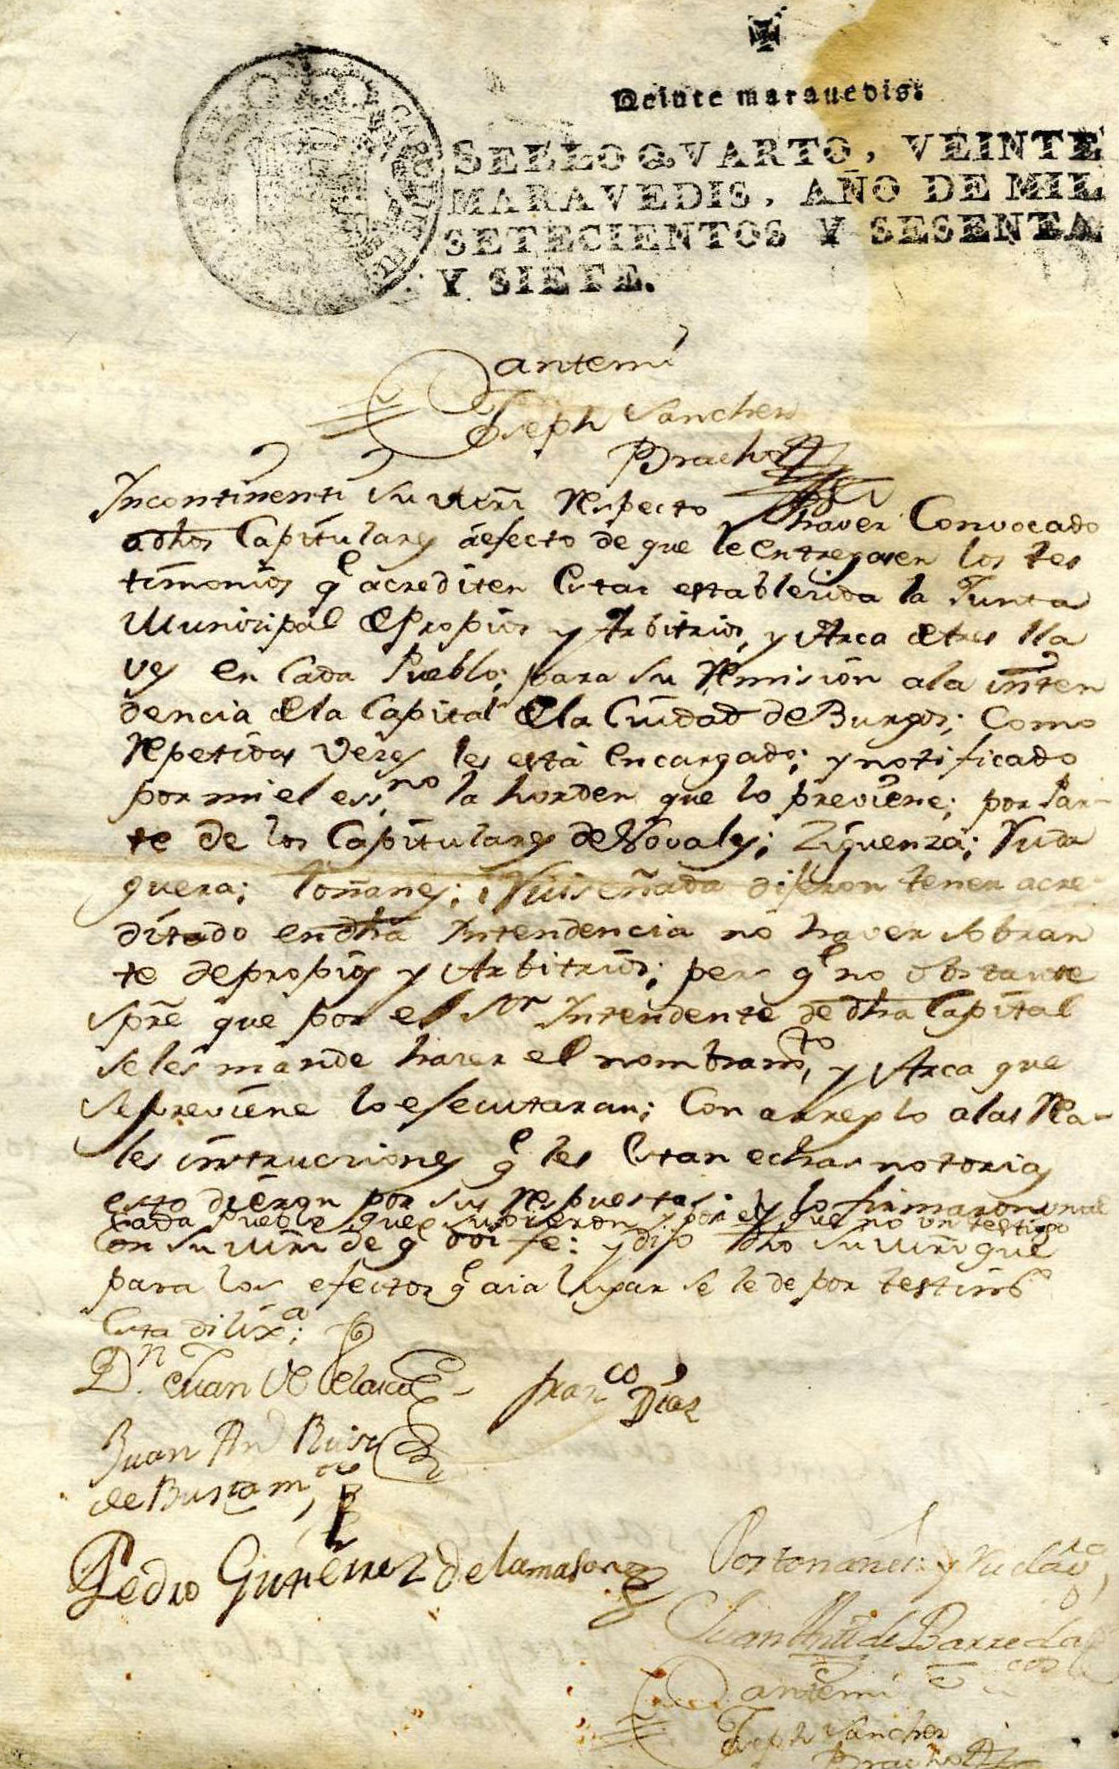 Veinte maravedis.
SELLO QVARTO, VEINTE
MARAVEDIS, AÑO DE MIL
SETECIENTOS Y SESENTA
Y SIETE.
antemi
Joseph Sanchez
Bracho
Incontinenti su mrñ respecto haver Convocado
adhos Capitulares aefecto de que le entregasen los tes
timonios q acrediten estar establecida la Junta
Municipal de Propios y Arbitrios, y Arca de tres lla
ves en Cada Pueblo; para su Remision ala inten
dencia de la Capital de la Ciudad de Burgos; Como
Repetidas Vezes les está encargado; y notificado
por mi el essno la horden que lo previene; por Par-
te de los Capitulares de Novales; Ziguenza; Ruda
guera; Toñanes; Ruiseñada dijeron tener acre-
ditado endha Intendencia no haver sobran
te de propios y Arbitrios; pero q no obstante
spre que por el Sor Intendente de dha Capital
se les mande hazer el nombramto, y Arca que
se previene lo esecutaran; Con arreglo alas Rea-
les instruciones q les estan echas notorias
esto dieron por sus Respuestas; y lo firmaron uno de
Cada Pueblo que supieron y por el que no un testigo
Con su mrñ de q doi fe: y dijo dho su mrñ que
para los efectos q aia lugar se le de por testimo
esta dilixa;
Dn Juan de Velasco
Franco Diaz
Juan An Ruiz
de Bustamte
Pedro Gutierrez de la masorra
Por tonanes y Rudao,
Juan Anto de Barreda
antemi
Joseph Sanchez
Bracho